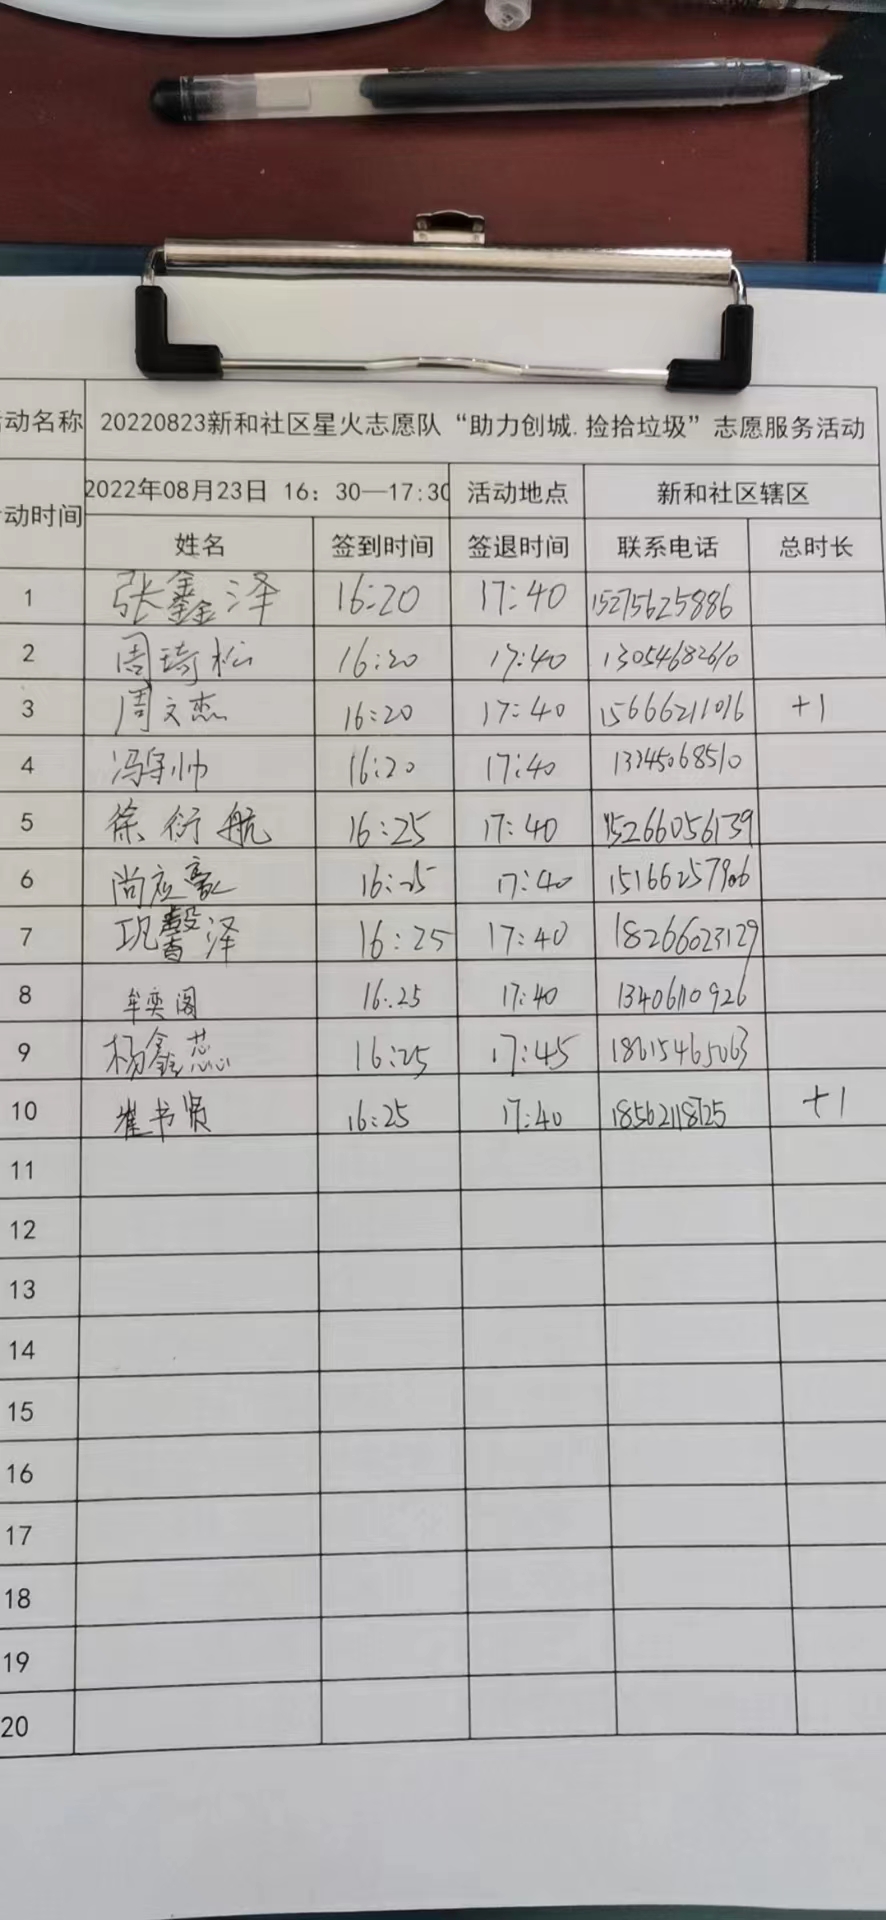 动名称 20220823新和社区星火志愿队“助力创城.捡拾垃圾”志愿服务活动
动时间 2022年08月23日 16：30—17:30 活动地点 新和社区辖区
姓名 签到时间 签退时间 联系电话 总时长
1 张鑫泽 16:20 17:40 15275625886
2 周琦松 16:20 17:40 13054682610
3 周文杰 16:20 17:40 15666211016 +1
4 冯宇帅 16:20 17:40 13345068510
5 徐衍航 16:25 17:40 15266056139
6 尚应豪 16:25 17:40 15166257906
7 巩馨泽 16:25 17:40 18266023129
8 牟奕阁 16:25 17:40 13406110926
9 杨鑫蕊 16:25 17:45 18615465063
10 崔书贤 16:25 17:40 18562118725 +1
11
12
13
14
15
16
17
18
19
20